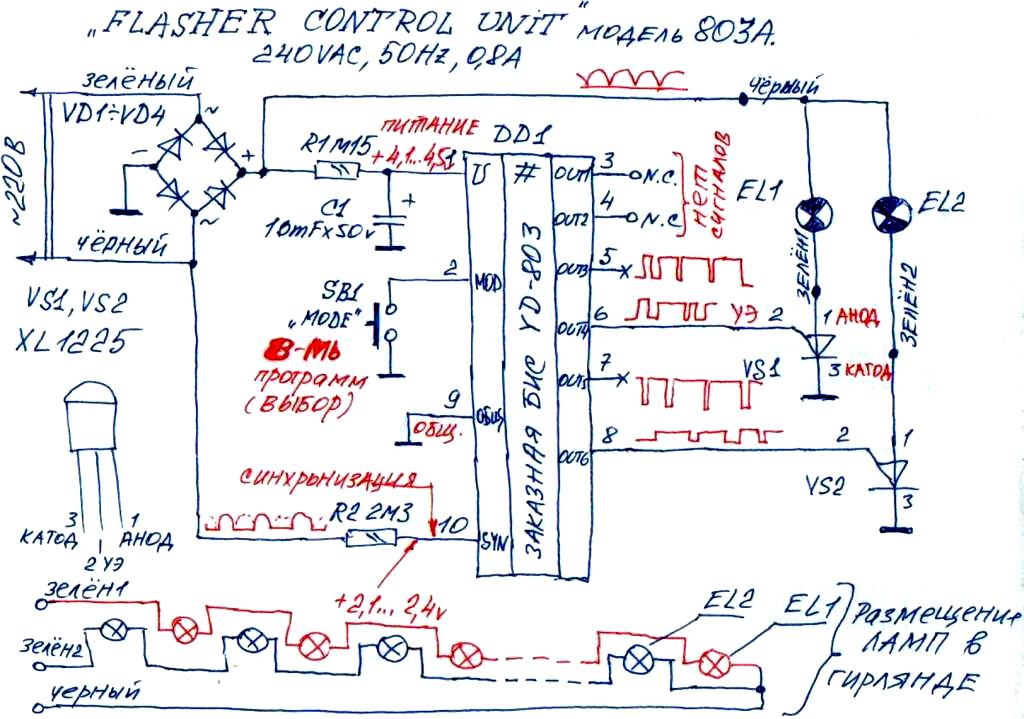 „FLASHER CONTROL UNIT" МОДЕЛЬ 803А.
240VAC, 50Hz, 0,8A
зелёный
VD1÷VD4
~220В
чёрный
~
~
−
+
R1 1М15
ПИТАНИЕ
+4,1...4,5
C1
10mFx50v
+
DD1
1
U
#
2
MOD
SB1
„MODE"
8-МЬ
программ
(ВЫБОР)
9
ОБЩ
ОБЩ.
СИНХРОНИЗАЦИЯ
R2 2М3
10
SYN
+2,1...2,4v
ЗАКАЗНАЯ БИС YD-803
OUT1
3
N.C.
OUT2
4
N.C.
НЕТ СИГНАЛОВ
OUT3
5
OUT4
6
УЭ
2
OUT5
7
OUT6
8
2
чёрный
EL1
EL2
ЗЕЛЁН1
ЗЕЛЁН2
1 АНОД
3 КАТОД
VS1
1
VS2
3
VS1, VS2
XL1225
3
КАТОД
1
АНОД
2 УЭ
зелён1
зелён2
черный
EL2
EL1
Размещение
ЛАМП В
ГИРЛЯНДЕ